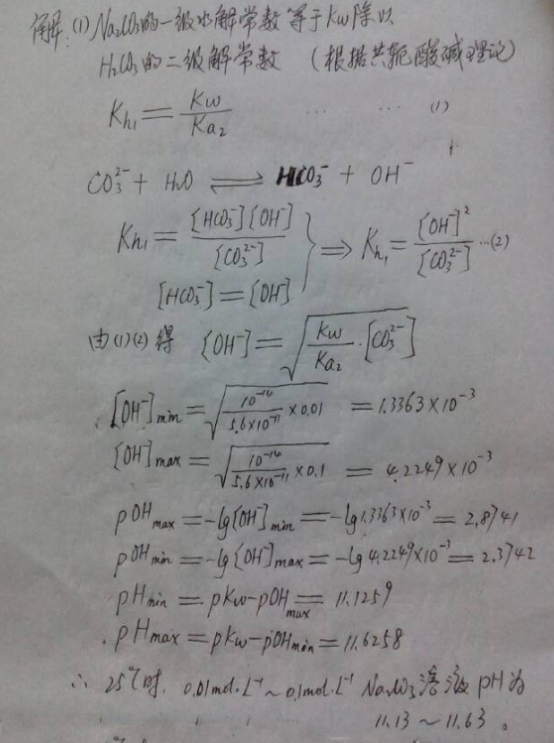 解:(1) Na₂CO₃的一级水解常数等于Kw除以
H₂CO₃的二级解常数 (根据共轭酸碱理论)
Kh₁ = Kw/Ka₂ … … (1)
CO₃²⁻ + H₂O ⇌ HCO₃⁻ + OH⁻
Kh₁ = [HCO₃⁻][OH⁻]/[CO₃²⁻] } ⇒ Kh₁ = [OH⁻]²/[CO₃²⁻] …(2)
[HCO₃⁻] = [OH⁻]
由(1)(2)得 [OH⁻] = √(Kw/Ka₂ · [CO₃²⁻])
[OH⁻]min = √(10⁻¹⁴/5.6×10⁻¹¹ × 0.01) = 1.3363×10⁻³
[OH⁻]max = √(10⁻¹⁴/5.6×10⁻¹¹ × 0.1) = 4.2249×10⁻³
pOHmax = -lg[OH⁻]min = -lg1.3363×10⁻³ = 2.8741
pOHmin = -lg[OH⁻]max = -lg4.2249×10⁻³ = 2.3742
pHmin = pKw-pOHmax = 11.1259
pHmax = pKw-pOHmin = 11.6258
∴ 25℃时, 0.01mol·L⁻¹~0.1mol·L⁻¹ Na₂CO₃溶液pH为
11.13~11.63。